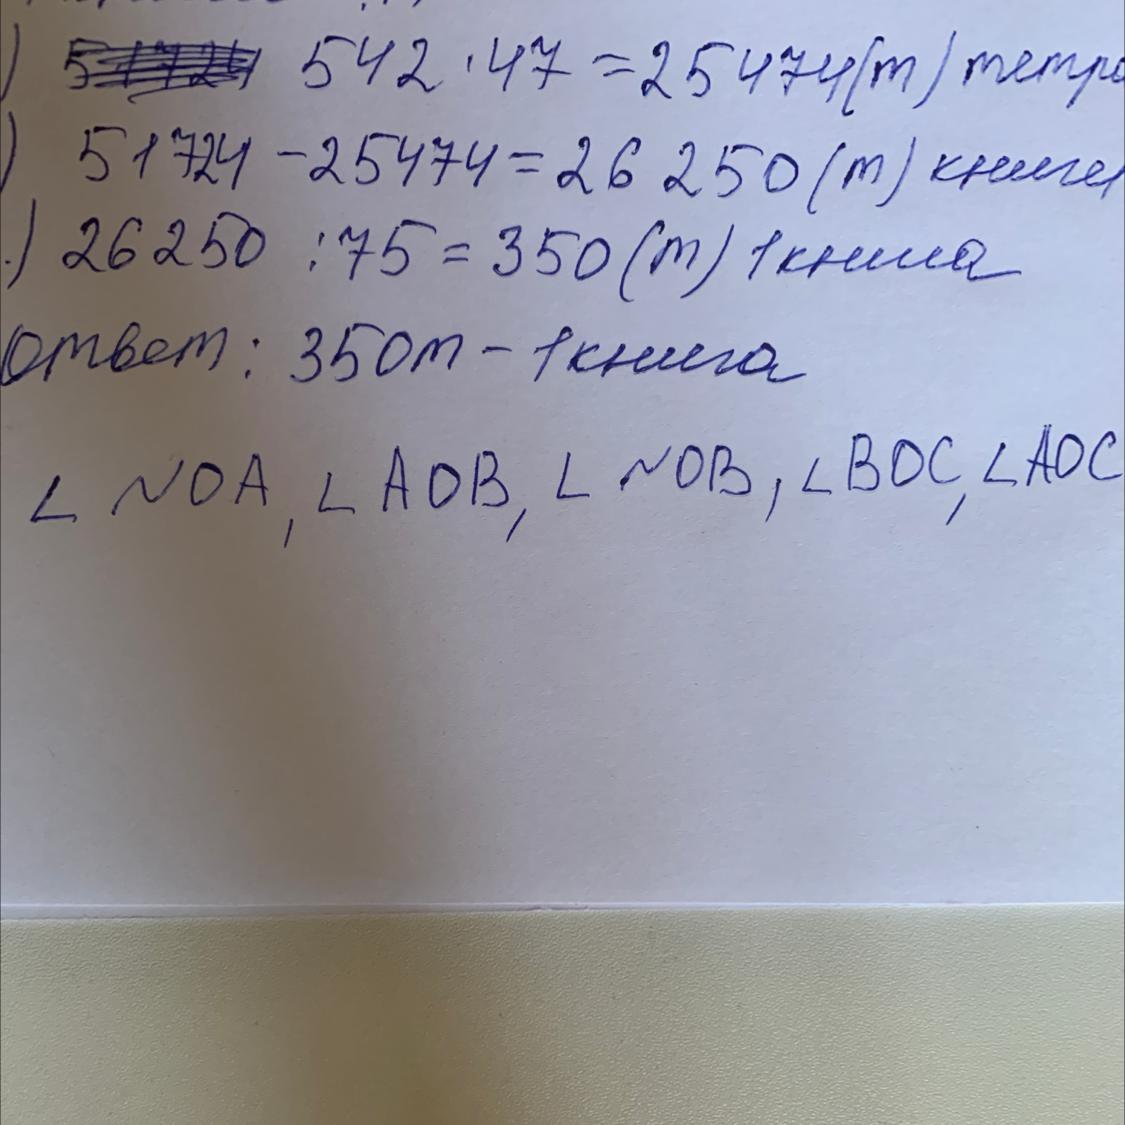 ) 542 · 47 = 25474(т) тетра
) 51724 - 25474 = 26 250 (т) книги
.) 26 250 : 75 = 350 (т) 1 книга
Ответ: 350т - 1 книга
∠ NOA, ∠ AOB, ∠ NOB, ∠BOC, ∠AOC